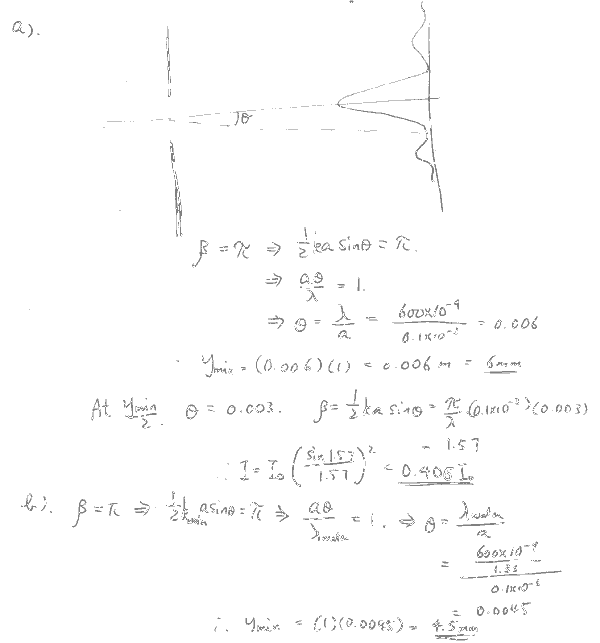 a).
θ
β = π ⇒ 1/2 ka sinθ = π.
⇒ aθ/λ = 1.
⇒ θ = λ/a = 600×10⁻⁹/0.1×10⁻³ = 0.006
y_min = (0.006)(1) = 0.006 m = 6mm
At y_min/2. θ = 0.003. β = 1/2 ka sinθ = π/λ (0.1×10⁻³)(0.003)
= 1.57
∴ I = I₀ (sin 1.57/1.57)² = 0.405 I₀
b). β = π ⇒ 1/2 k a sinθ = π ⇒ aθ/λ_water = 1. ⇒ θ = λ_water/a
= 600×10⁻⁹/1.33/0.1×10⁻³
= 0.0045
∴ y_min = (1)(0.0045) = 4.5 mm